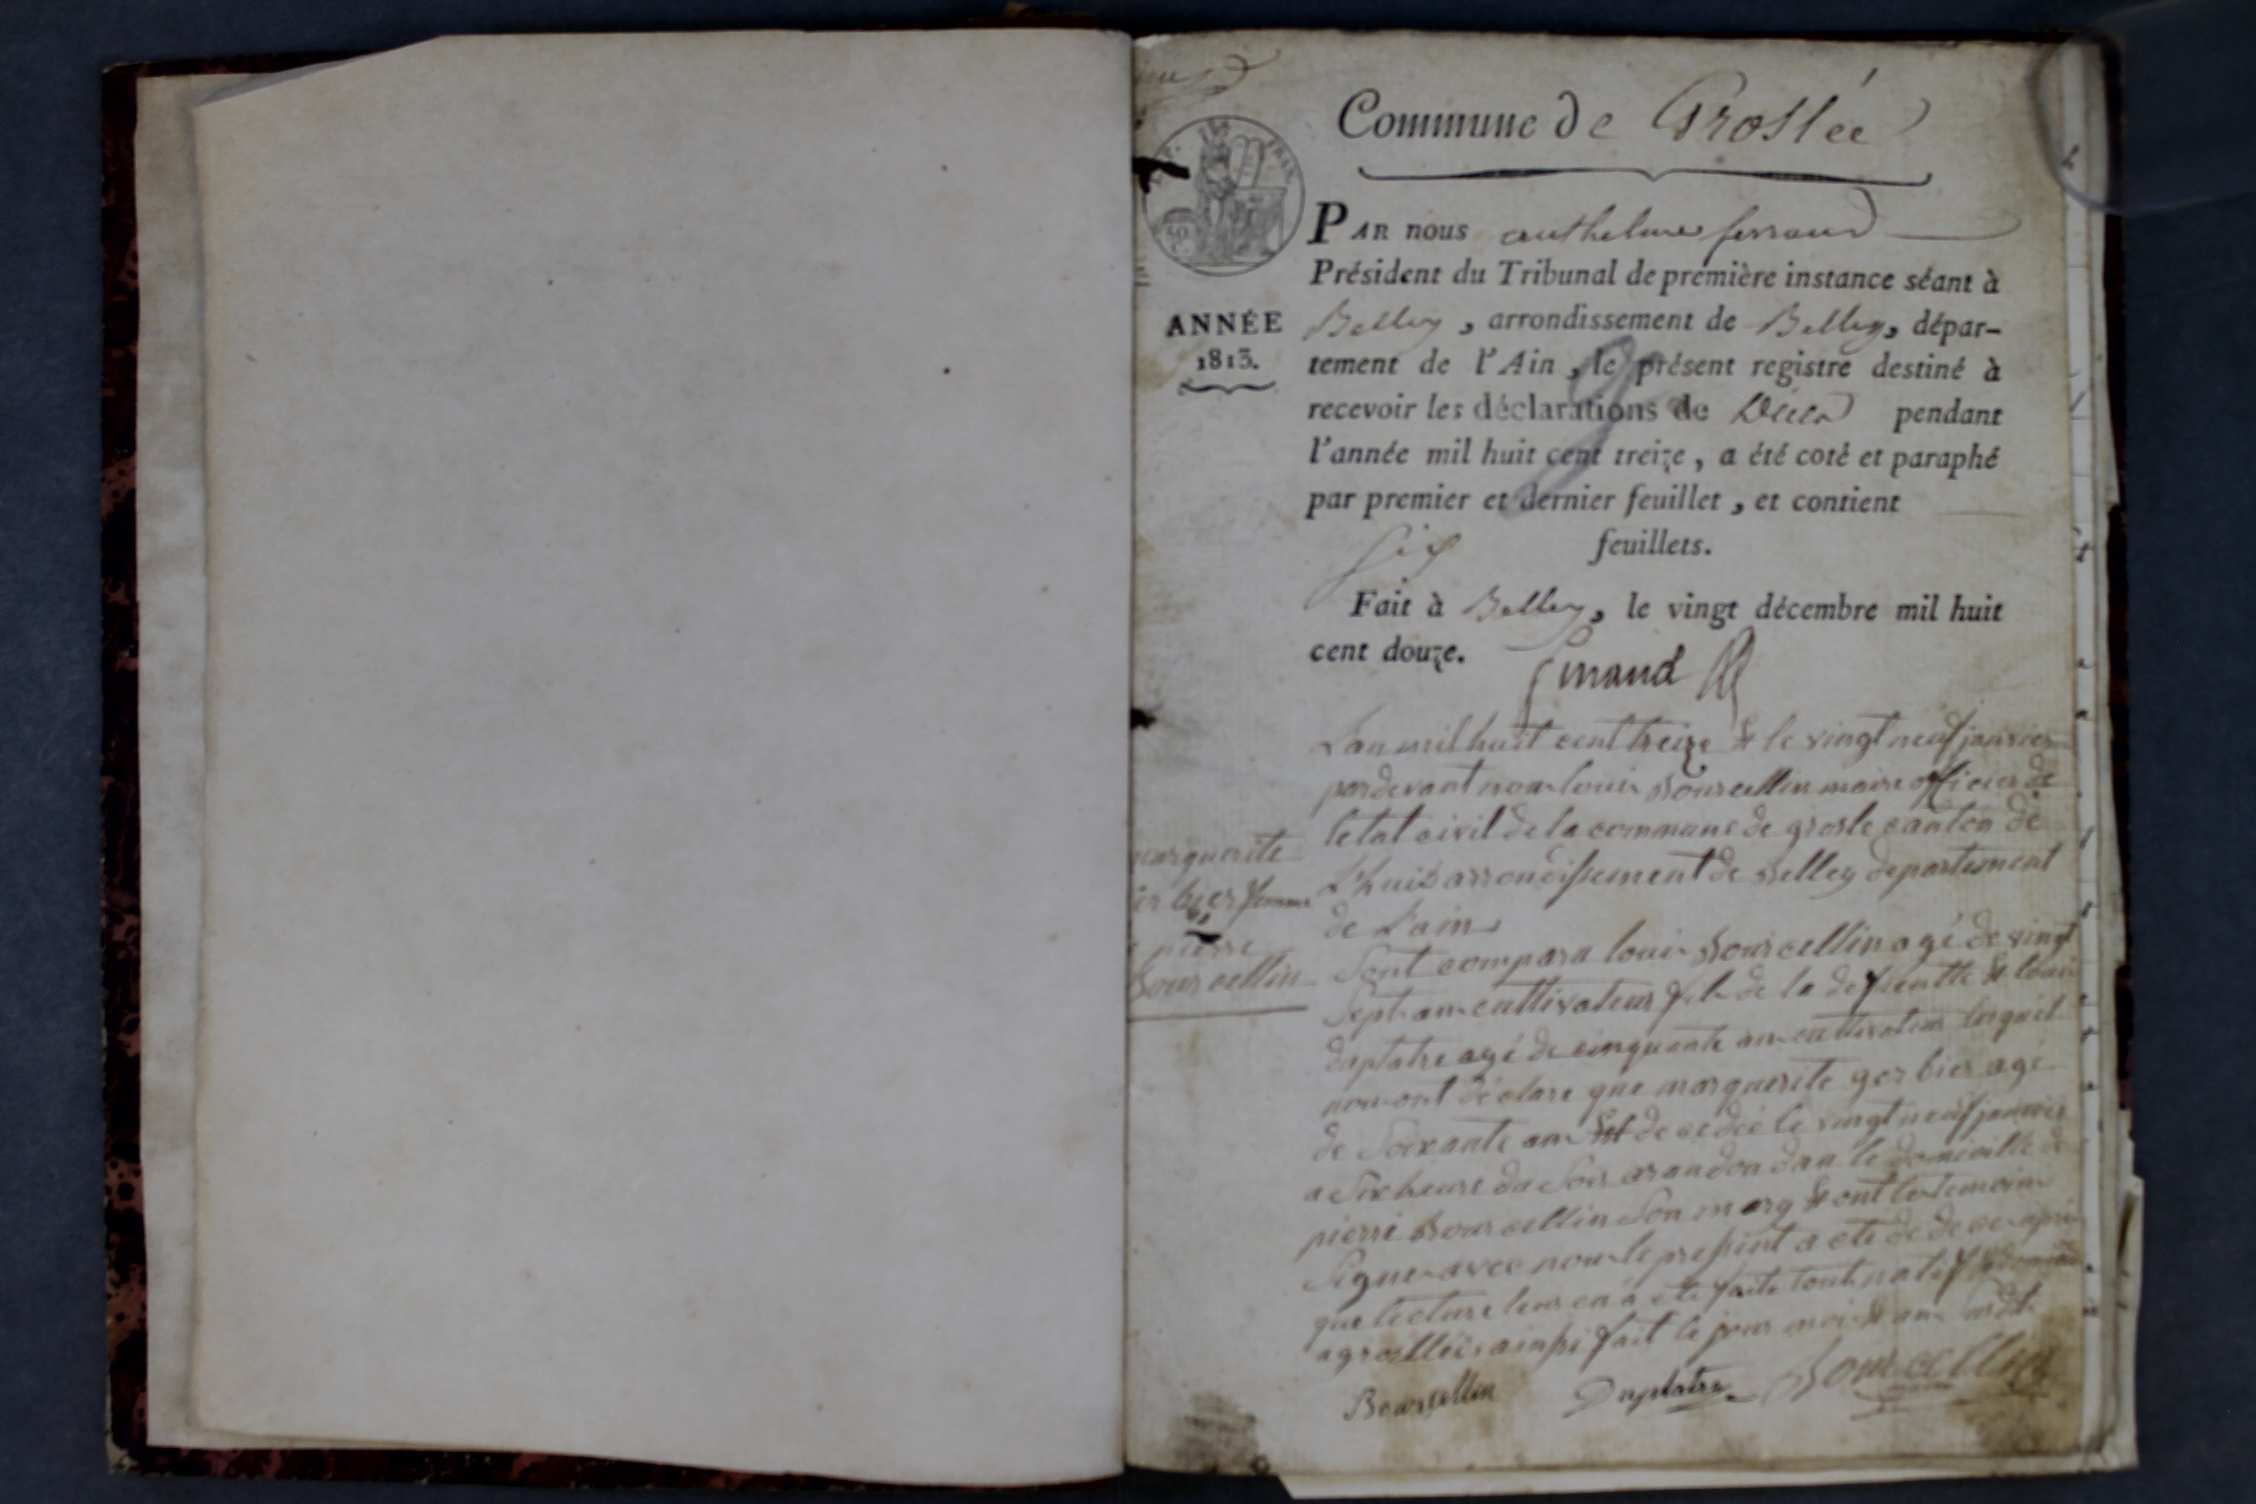 Commune de Groslée
PAR nous anthelme ferrand
Président du Tribunal de première instance séant à
Belley, arrondissement de Belley, dépar-
tement de l'Ain, le présent registre destiné à
recevoir les déclarations de Décès pendant
l'année mil huit cent treize, a été coté et paraphé
par premier et dernier feuillet, et contient
six feuillets.
Fait à Belley, le vingt décembre mil huit
cent douze.
ANNÉE
1813.
marguerite
femme
pierre
Boursellin
Lan mil huit cent treize & le vingt neuf janvier
pardevant nous louis Boursellin maire officier de
letat civil de la commune de grosle canton de
Lhuis arrondissement de Belley departement
de Lain
Sont comparu louis Boursellin agé de vingt
Sept ans cultivateur fils de la & louis
duplatre agé de cinquante ans cultivateur lesquel
nous ont déclare que marguerite gerbier agé
de Soixante ans est decedée le vingt neuf janvier
a Six heure du Soir dan le domicille de
pierre Boursellin Son mary & ont les temoins
Signes avec nous le present a cte de deces apres
que lecture leur en a ete faite
fait le jour mois & an
Boursellin Duplatre Boursellin